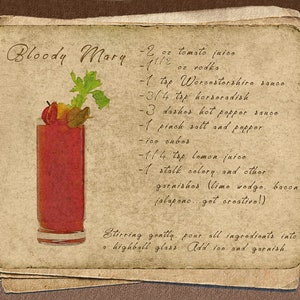 Bloody Mary
-3 oz tomato juice
-1 1/2 oz vodka
-1 tsp Worcestershire sauce
-3/4 tsp horseradish
-3 dashes hot pepper sauce
-1 pinch salt and pepper
-ice cubes
-1/4 tsp lemon juice
-1 stalk celery and other
garnishes (lime wedge, bacon,
jalapeno, get creative!)
Stirring gently, pour all ingredients into
a highball glass. Add ice and garnish.